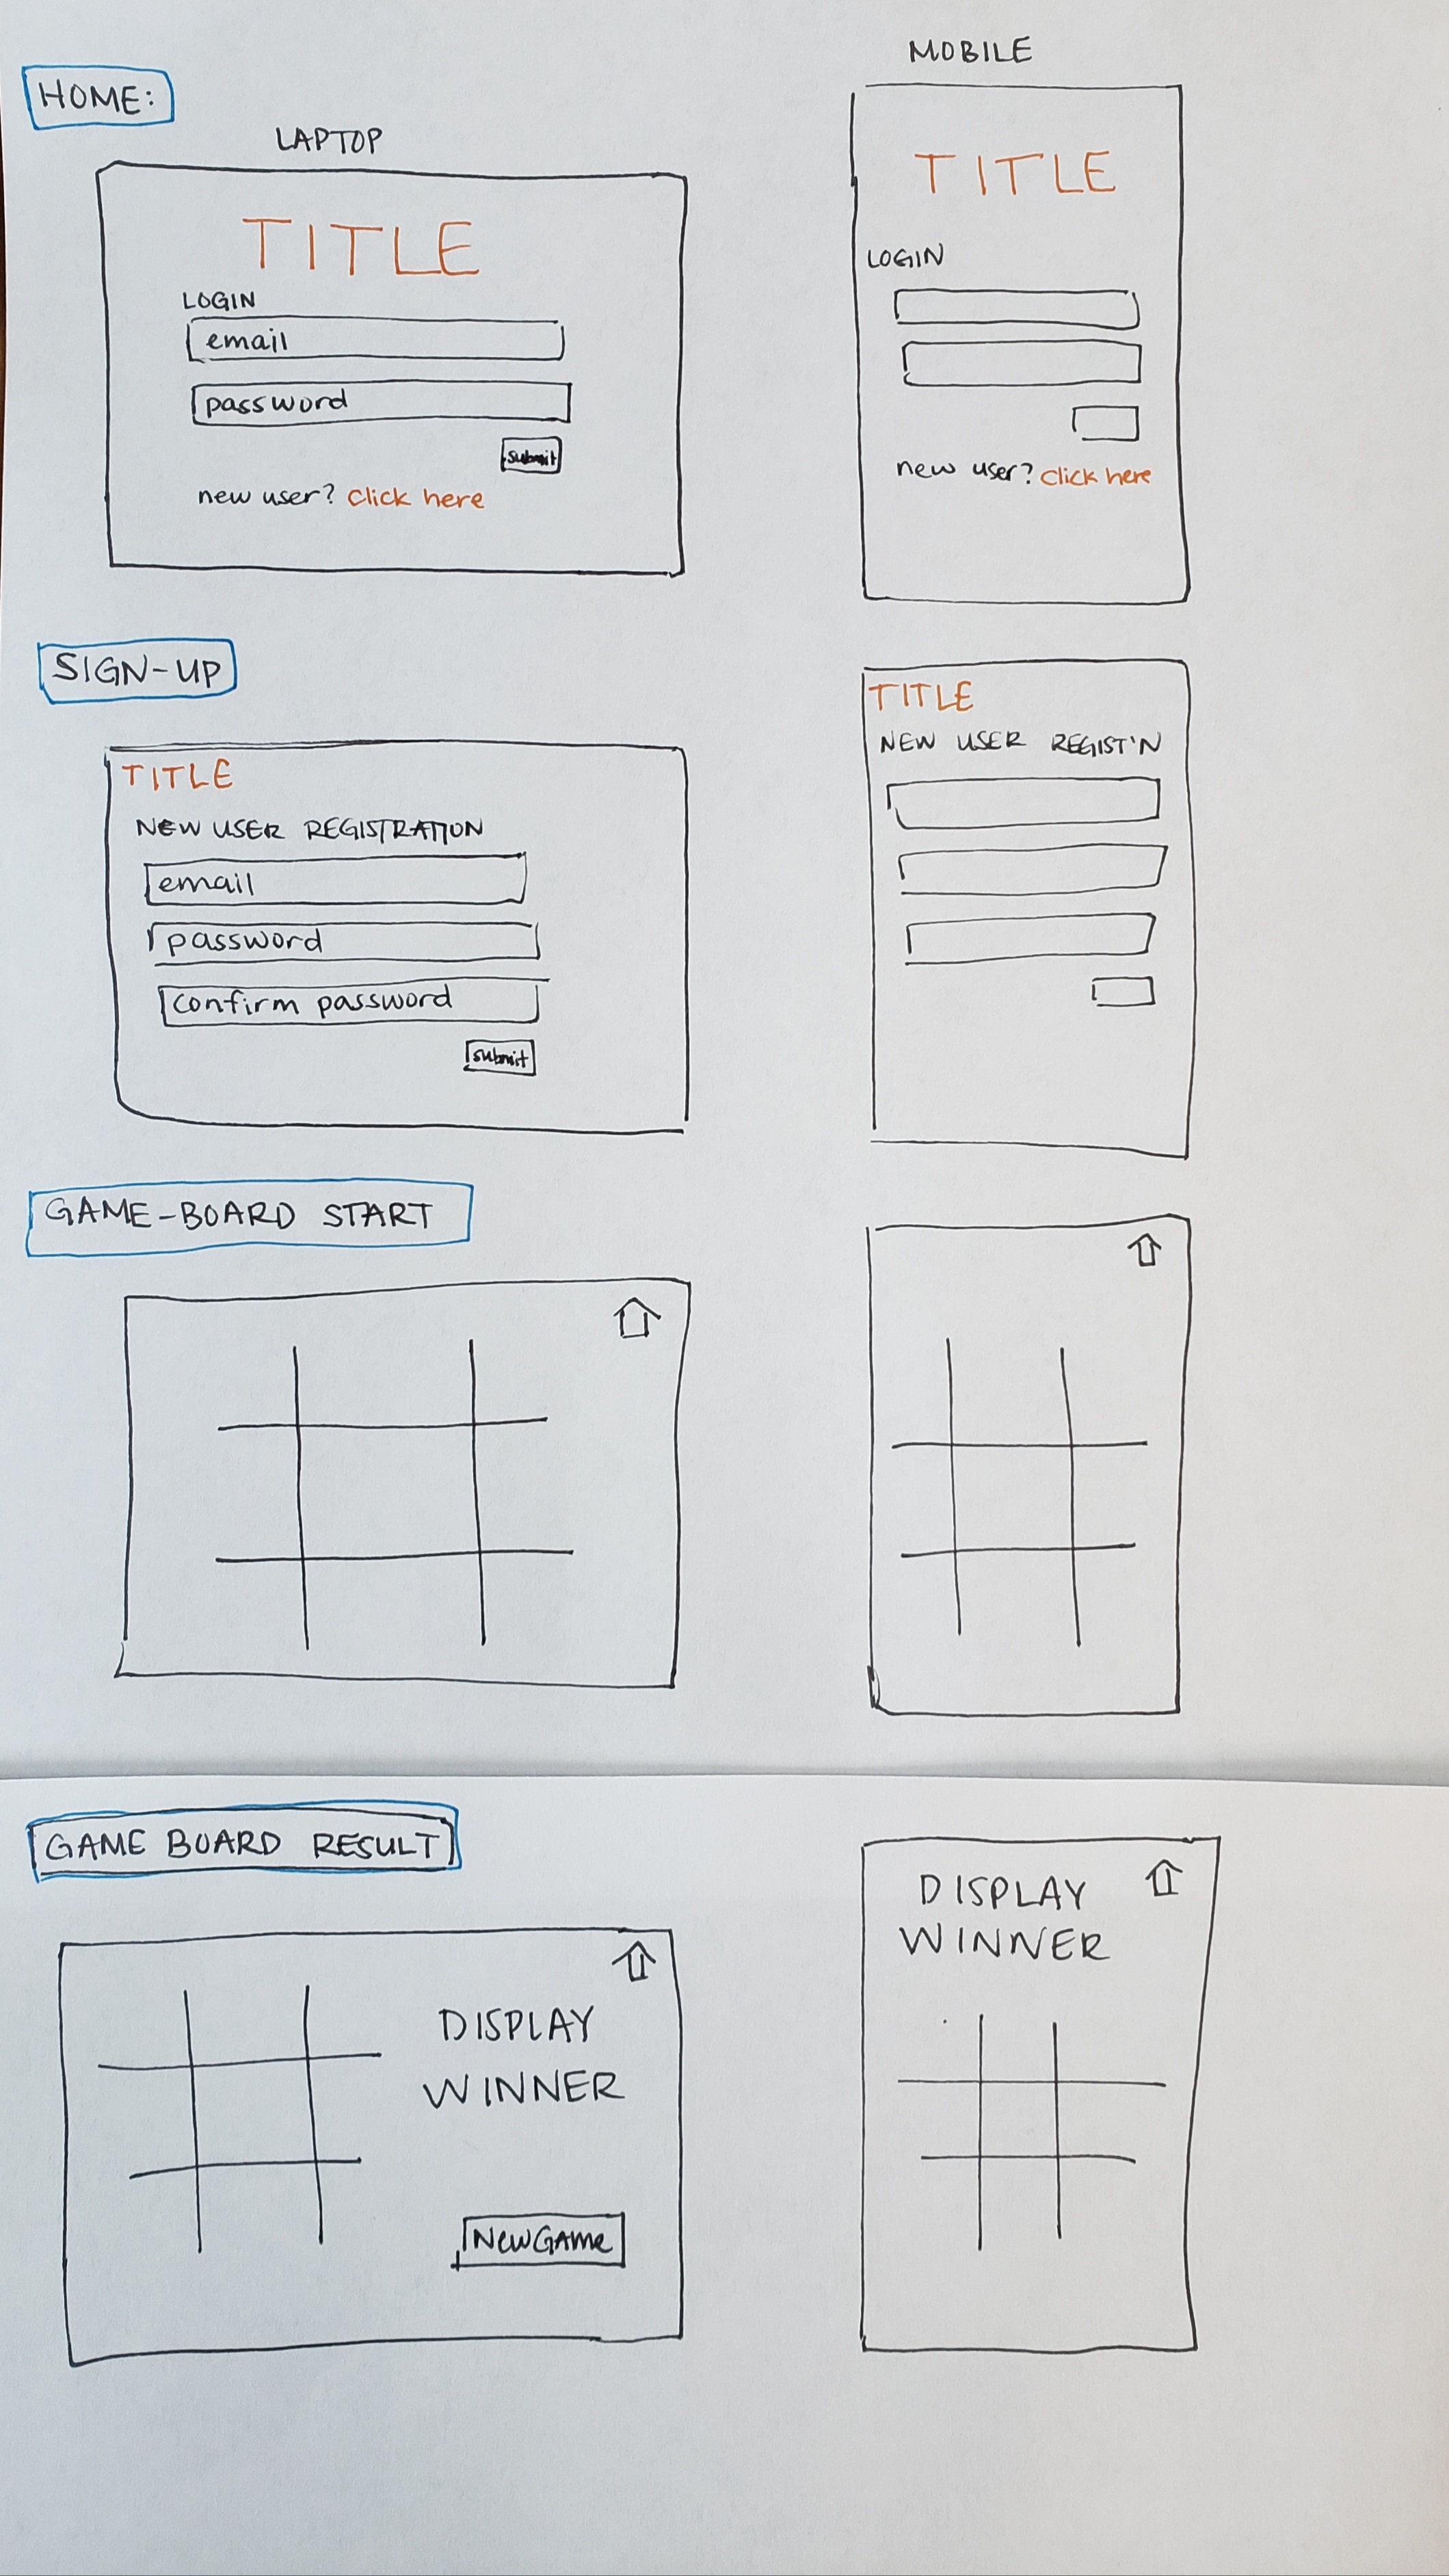 MOBILE
HOME:
LAPTOP
TITLE
LOGIN
email
password
submit
new user? click here
TITLE
LOGIN
new user? click here
SIGN-UP
TITLE
NEW USER REGISTRATION
email
password
confirm password
submit
TITLE
NEW USER REGIST'N
GAME-BOARD START
GAME BOARD RESULT
DISPLAY
WINNER
NewGame
DISPLAY
WINNER